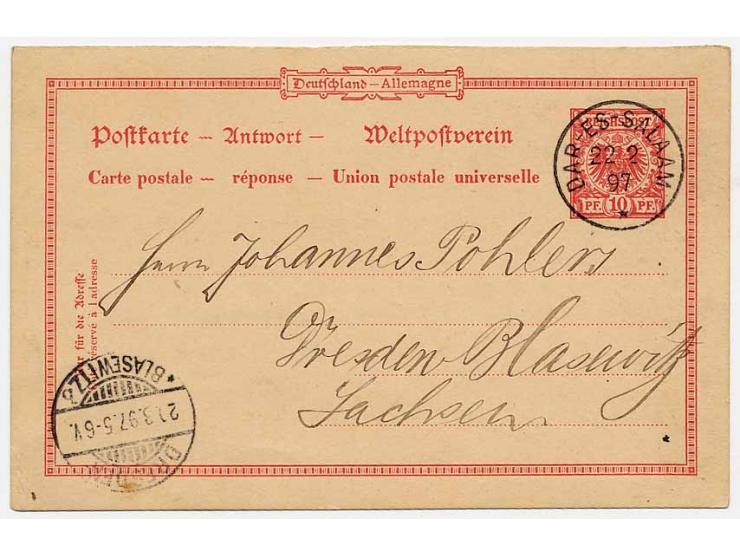 Deutschland – Allemagne
Postkarte – Antwort – Weltpostverein
Carte postale – réponse – Union postale universelle
REICHSPOST
PF. 10 PF.
DAR-ES-SALAAM
22 2
97
*
Herrn Johannes Pohlers
Dresden Blasewitz
Sachsen
für die Adresse
réservé à l'adresse
* BLASEWITZ
21.3.97. 5-6 V.
DRESDEN